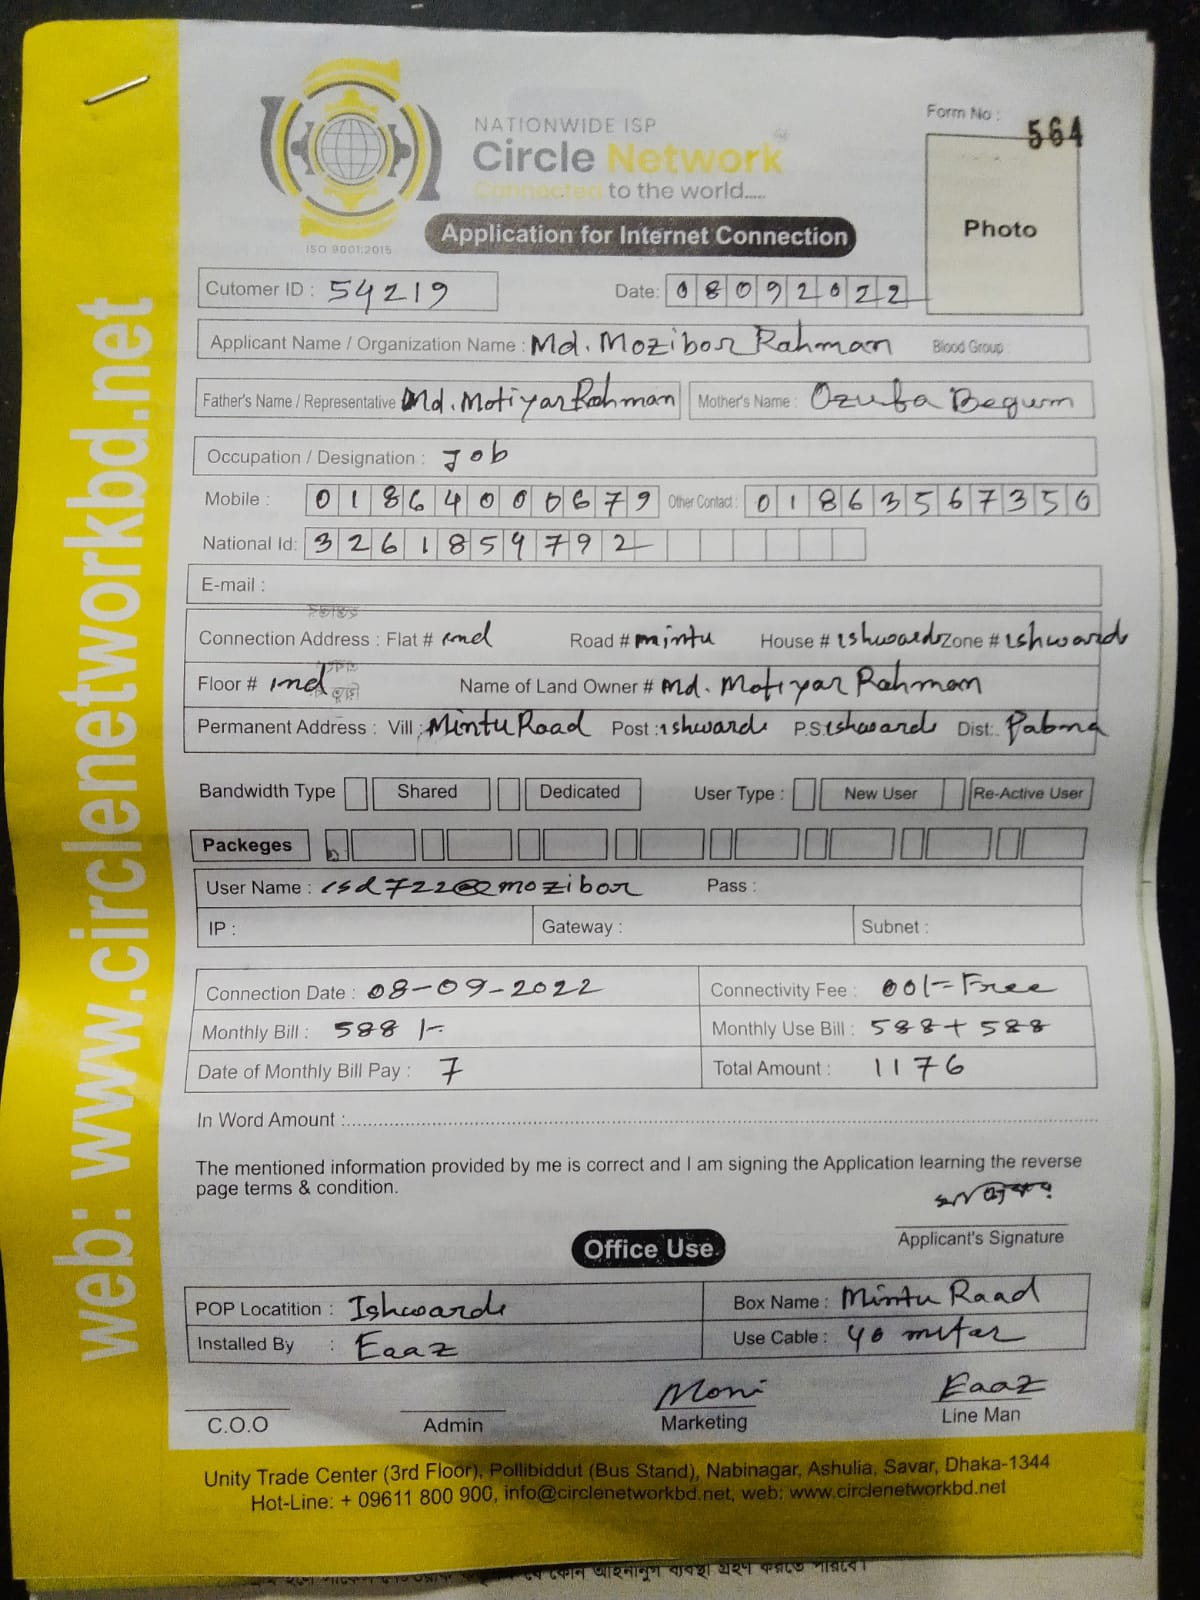 Form No :
564
NATIONWIDE ISP
Circle Network
Connected to the world.....
ISO 9001:2015
Application for Internet Connection
Photo
Cutomer ID : 54219 Date: 08092022
Applicant Name / Organization Name : Md. Mozibor Rahman Blood Group :
Father's Name / Representative Md. Motiyar Rahman Mother's Name : Ozufa Begum
Occupation / Designation : Job
Mobile : 01864000679 Other Contact : 01863567350
National Id: 3261859792
E-mail :
Connection Address : Flat # ind Road # mintu House # ishwardi Zone # ishwardi
Floor # ind Name of Land Owner # Md. Motiyar Rahman
Permanent Address : Vill : Mintu Road Post : ishwardi P.S: ishwardi Dist: Pabna
Bandwidth Type Shared Dedicated User Type : New User Re-Active User
Packeges
User Name : isd722@mozibor Pass :
IP : Gateway : Subnet :
Connection Date : 08-09-2022 Connectivity Fee : 00/= Free
Monthly Bill : 588 /- Monthly Use Bill : 588 + 588
Date of Monthly Bill Pay : 7 Total Amount : 1176
In Word Amount :
The mentioned information provided by me is correct and I am signing the Application learning the reverse
page terms & condition.
Applicant's Signature
Office Use
POP Locatition : Ishwardi Box Name : Mintu Raad
Installed By : Eaaz Use Cable : 40 mitar
Moni Eaaz
C.O.O Admin Marketing Line Man
Unity Trade Center (3rd Floor), Pollibiddut (Bus Stand), Nabinagar, Ashulia, Savar, Dhaka-1344
Hot-Line: + 09611 800 900, info@circlenetworkbd.net, web: www.circlenetworkbd.net
web: www.circlenetworkbd.net